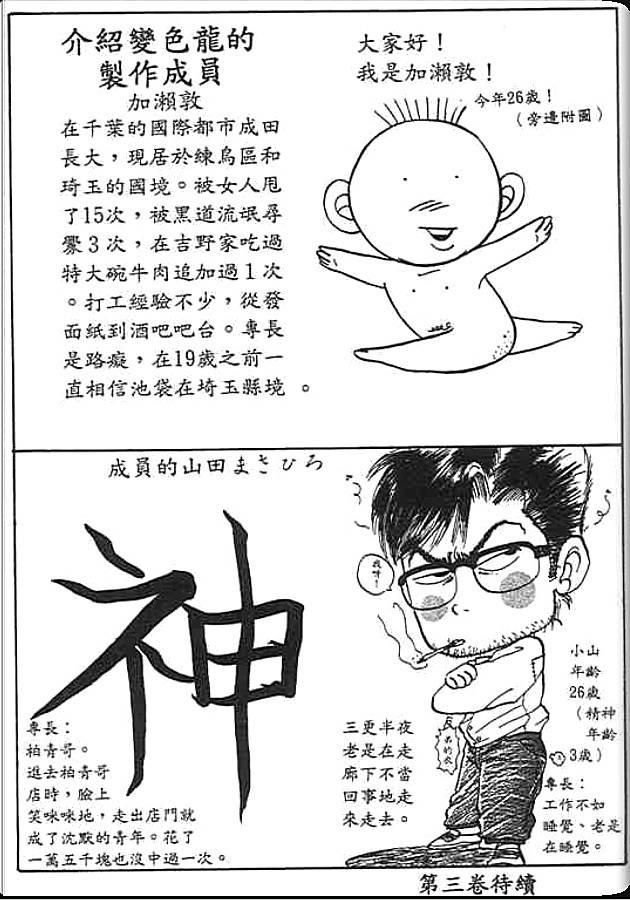 介紹變色龍的
製作成員
加瀨敦
在千葉的國際都市成田
長大，現居於練鳥區和
琦玉的國境。被女人甩
了15次，被黑道流氓尋
釁3次，在吉野家吃過
特大碗牛肉追加過1次
。打工經驗不少，從發
面紙到酒吧吧台。專長
是路癡，在19歲之前一
直相信池袋在埼玉縣境。
大家好！
我是加瀨敦！
今年26歲！
（旁邊附圖）
成員的山田まさひろ
神
專長：
柏青哥。
進去柏青哥
店時，臉上
笑咪咪地，走出店門就
成了沈默的青年。花了
一萬五千塊也沒中過一次。
三更半夜
老是在走
廊下不當
回事地走
來走去。
小山
年齡
26歲
（精神
年齡
3歲）
專長：
工作不如
睡覺、老是
在睡覺。
第三卷待續